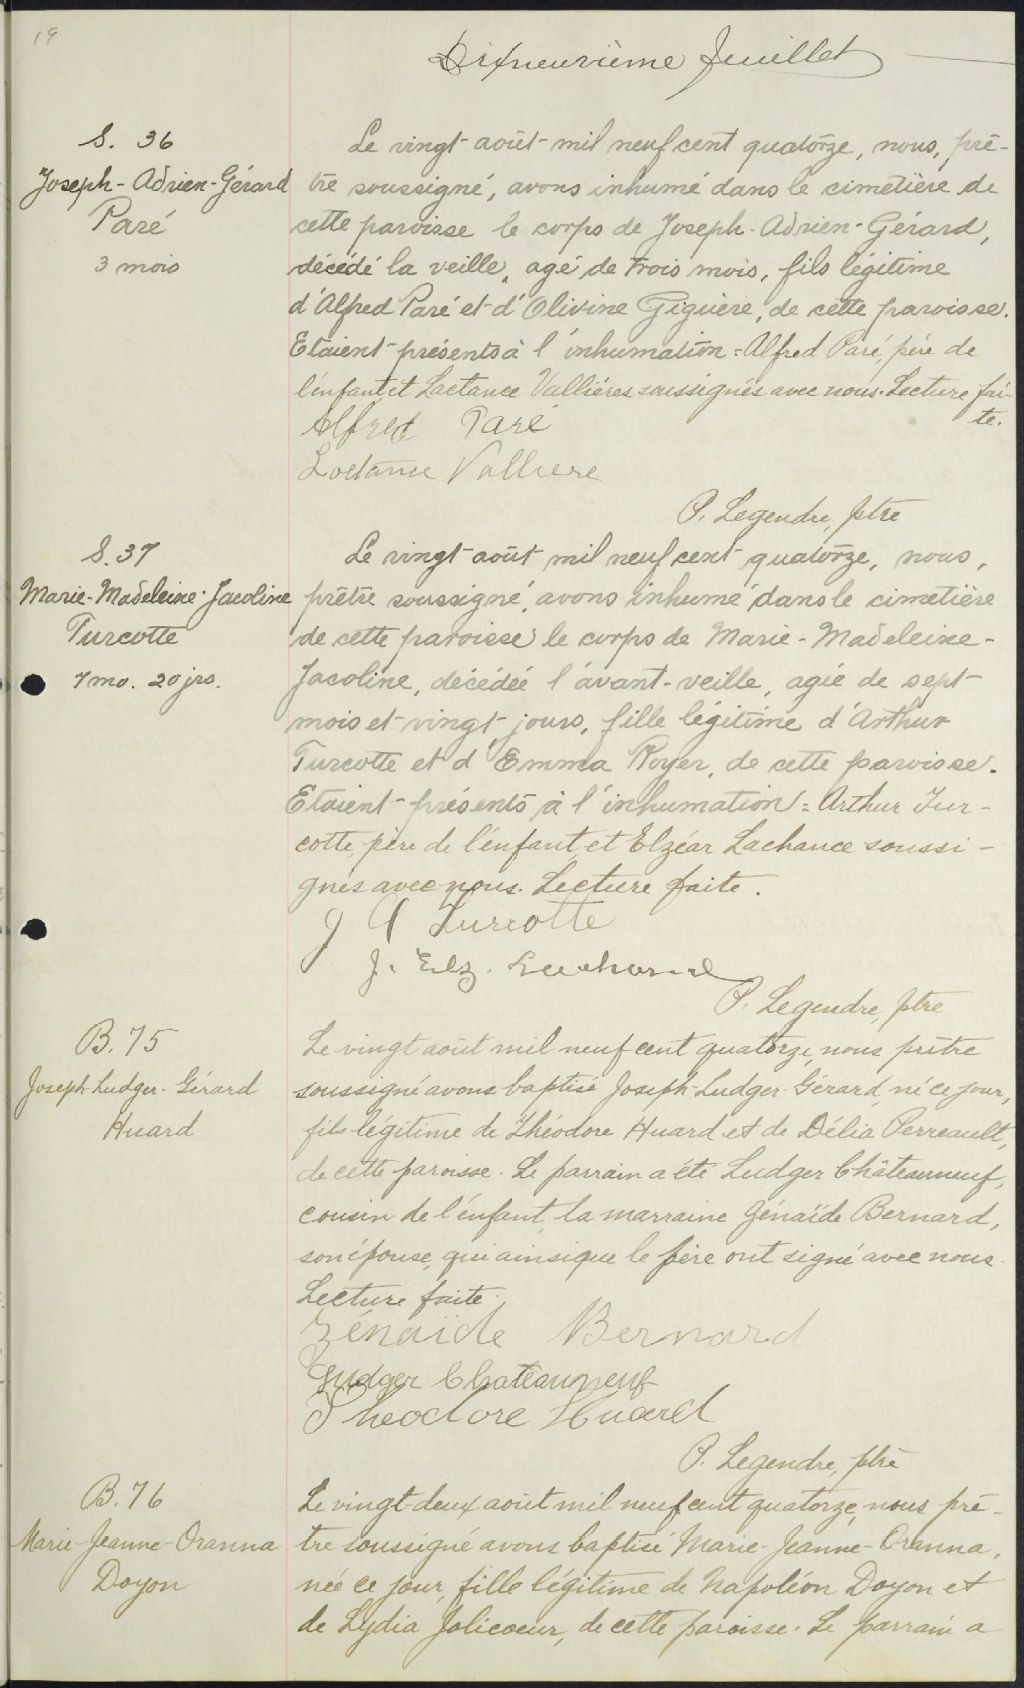 19
Dixneuvième feuillet
S. 36
Joseph-Adrien-Gérard
Paré
3 mois
Le vingt août mil neuf cent quatorze, nous, prê-
tre soussigné, avons inhumé dans le cimetière de
cette paroisse le corps de Joseph-Adrien-Gérard,
décédé la veille, agé de trois mois, fils légitime
d'Alfred Paré et d'Olivine Giguère, de cette paroisse.
Etaient présents à l'inhumation = Alfred Paré, père de
l'enfant et Lactance Vallières soussignés avec nous. Lecture fai-
te.
Alfred Paré
Lactance Valliere
P. Legendre, ptre
S. 37
Marie-Madeleine-Jacoline
Turcotte
7 mo. 20 jrs.
Le vingt août mil neuf cent quatorze, nous,
prêtre soussigné, avons inhumé dans le cimetière
de cette paroisse le corps de Marie-Madeleine-
Jacoline, décédée l'avant-veille, agée de sept
mois et vingt jours, fille légitime d'Arthur
Turcotte et d'Emma Royer, de cette paroisse.
Etaient présents à l'inhumation = Arthur Tur-
cotte, père de l'enfant, et Elzéar Lachance soussi-
gnés avec nous. Lecture faite.
J A Turcotte
J. Elz. Lachance
P. Legendre, ptre
B. 75
Joseph-Ludger-Gérard
Huard
Le vingt août mil neuf cent quatorze, nous prêtre
soussigné avons baptisé Joseph-Ludger-Gérard, né ce jour,
fils légitime de Théodore Huard et de Délia Perreault,
de cette paroisse. Le parrain a été Ludger Châteauneuf,
cousin de l'enfant, la marraine Zénaïde Bernard,
son épouse, qui ainsi que le père ont signé avec nous.
Lecture faite.
Zénaïde Bernard
Ludger Chateauneuf
Theodore Huard
P. Legendre, ptre
B. 76
Marie-Jeanne-Oranna
Doyon
Le vingt-deux août mil neuf cent quatorze, nous prê-
tre soussigné avons baptisé Marie-Jeanne-Oranna,
née ce jour, fille légitime de Napoléon Doyon et
de Lydia Jolicoeur, de cette paroisse. Le parrain a